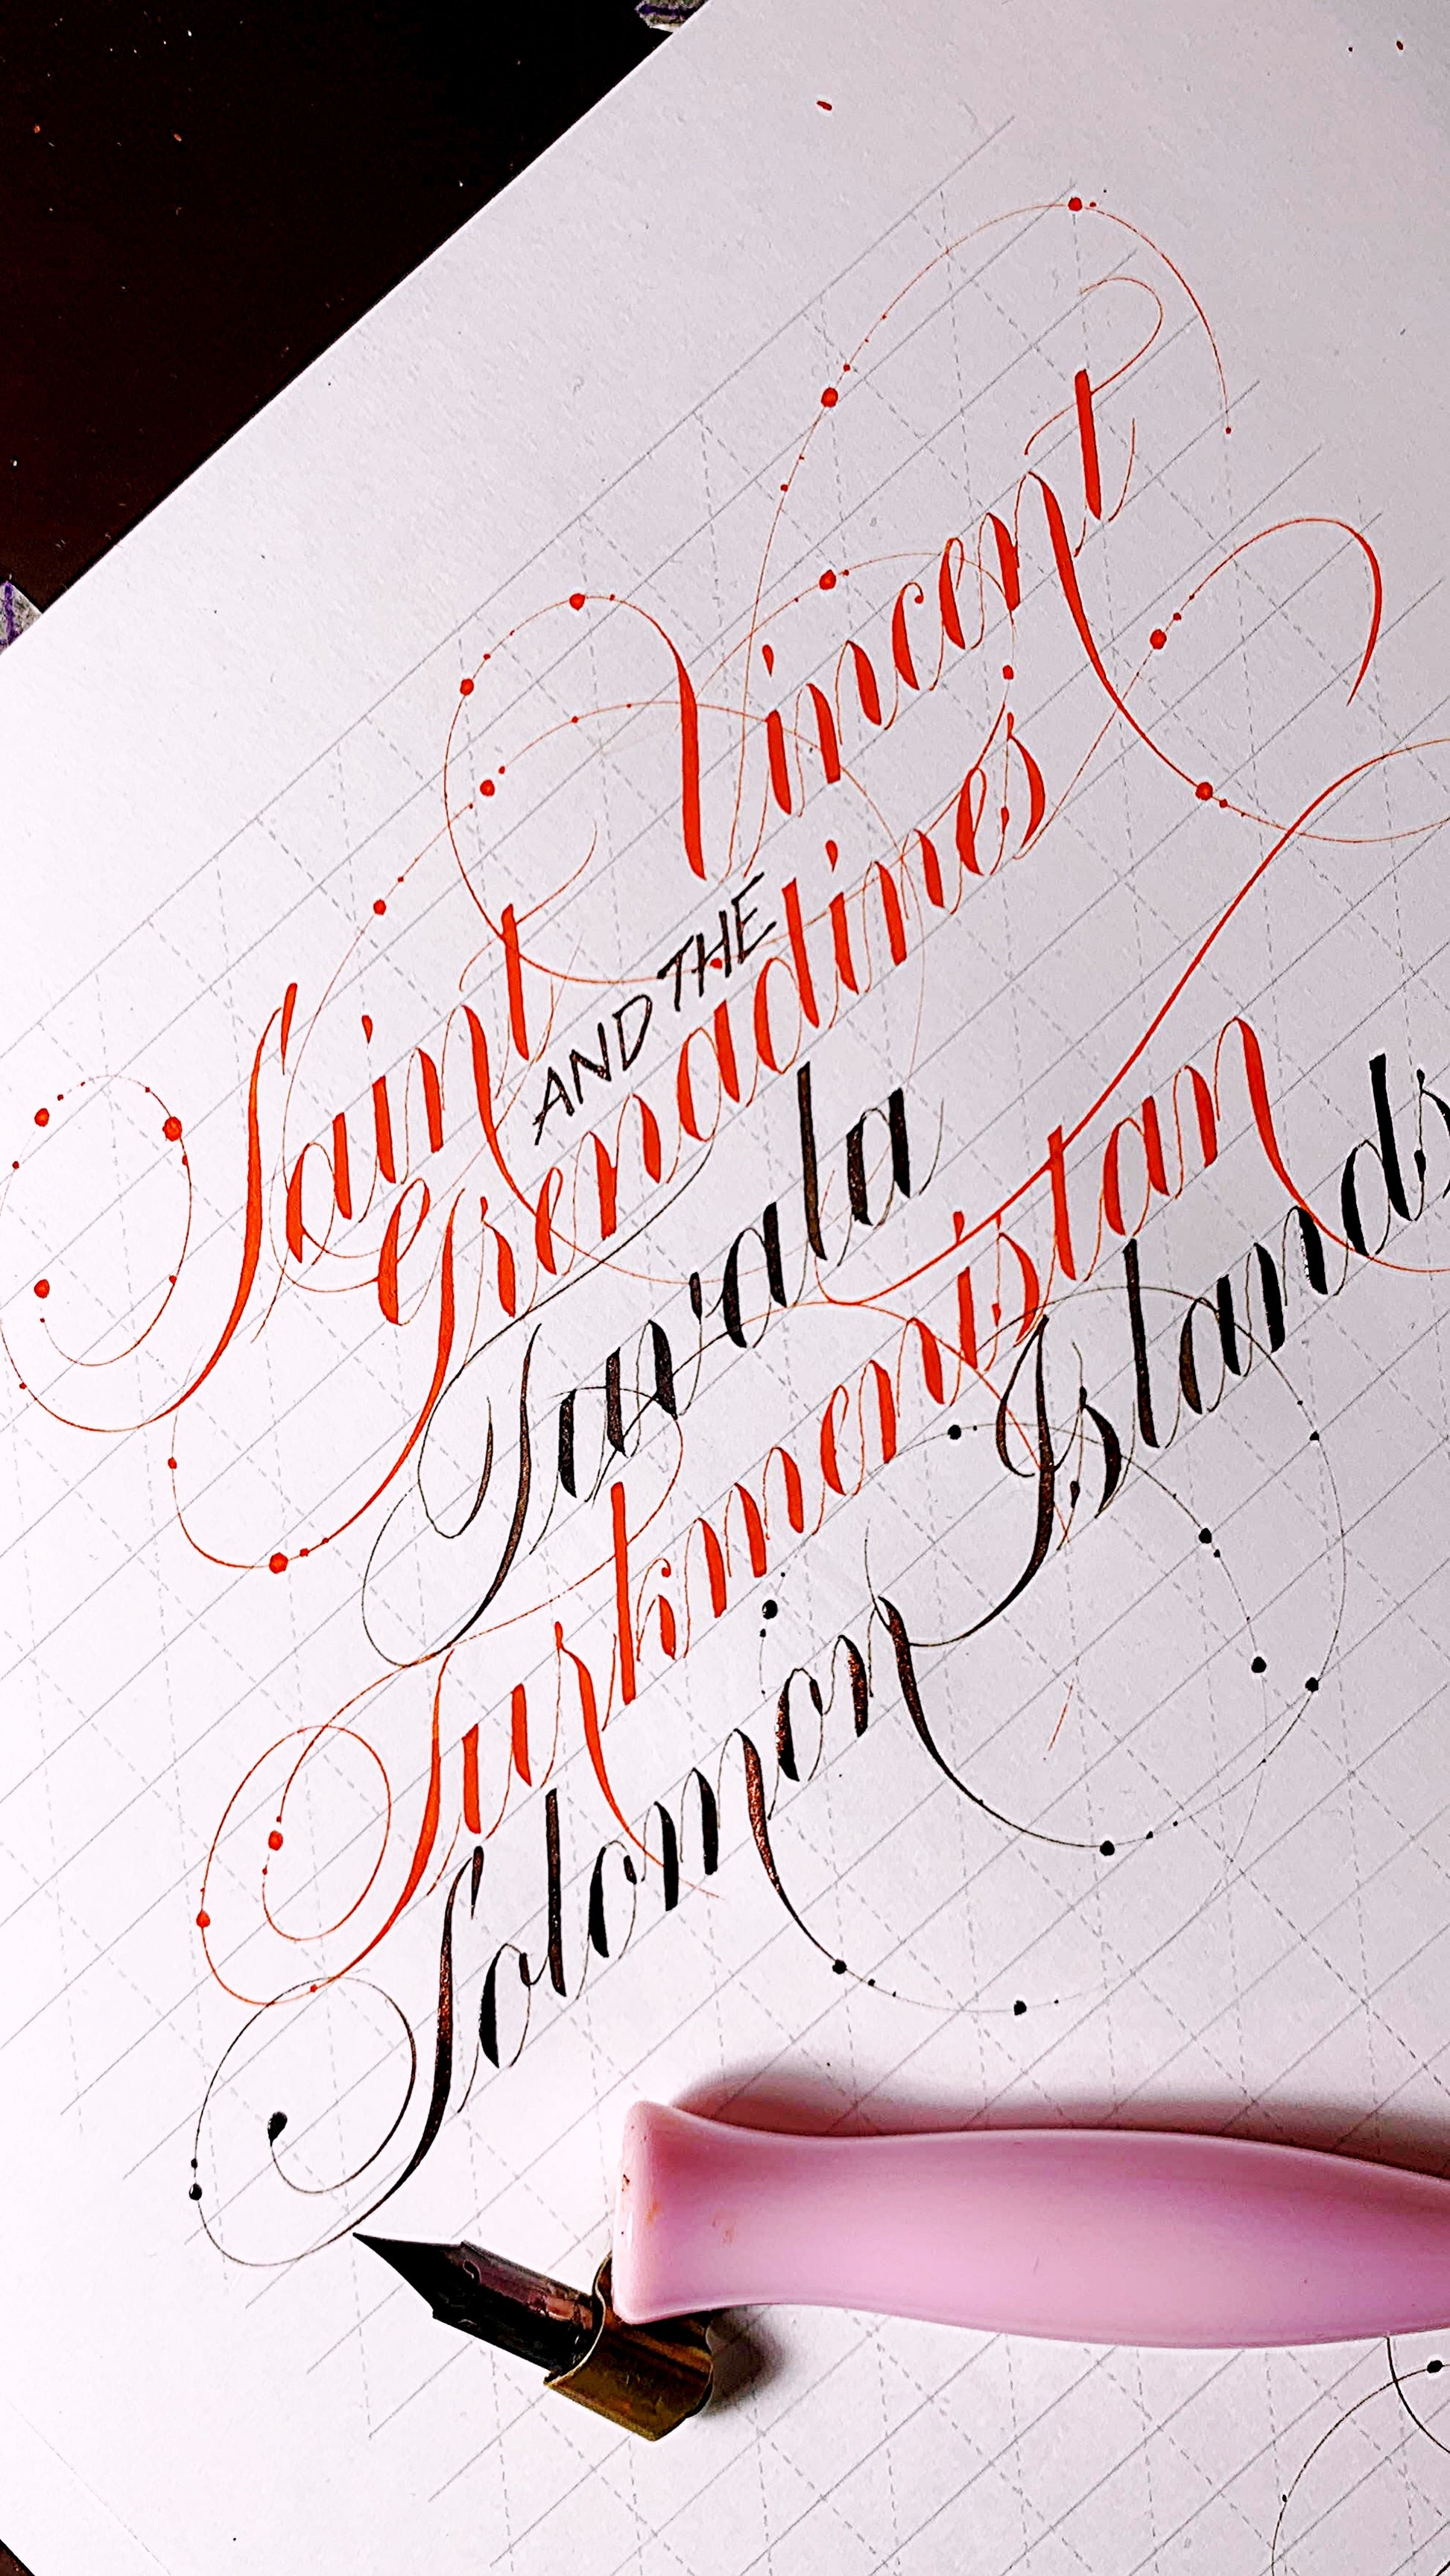 Saint Vincent
AND THE
Grenadines
Tuvala
Turkmenistan
Solomon Islands